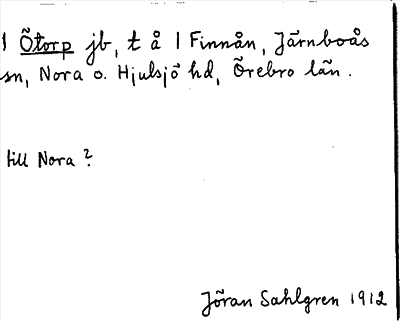 1 Ötorp jb, t å 1 Finnån, Järnboås
sn, Nora o. Hjulsjö hd, Örebro län.
till Nora?
Jöran Sahlgren 1912